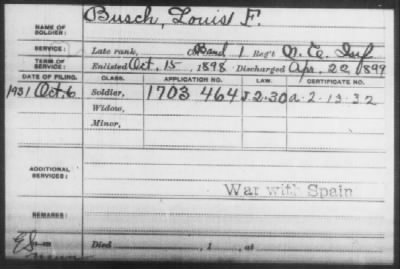 NAME OF SOLDIER: Busch, Louis F.
SERVICE: Late rank, Band 1 Reg't N.C. Inf
TERM OF SERVICE: Enlisted Oct. 15, 1898 Discharged Apr. 22, 1899
DATE OF FILING. CLASS. APPLICATION NO. LAW. CERTIFICATE NO.
1931 Oct. 6 Soldier, 1703 464 J.2.30 a-2-13-32
Widow,
Minor,
ADDITIONAL SERVICES:
War with Spain
REMARKS:
Died , 1 , at